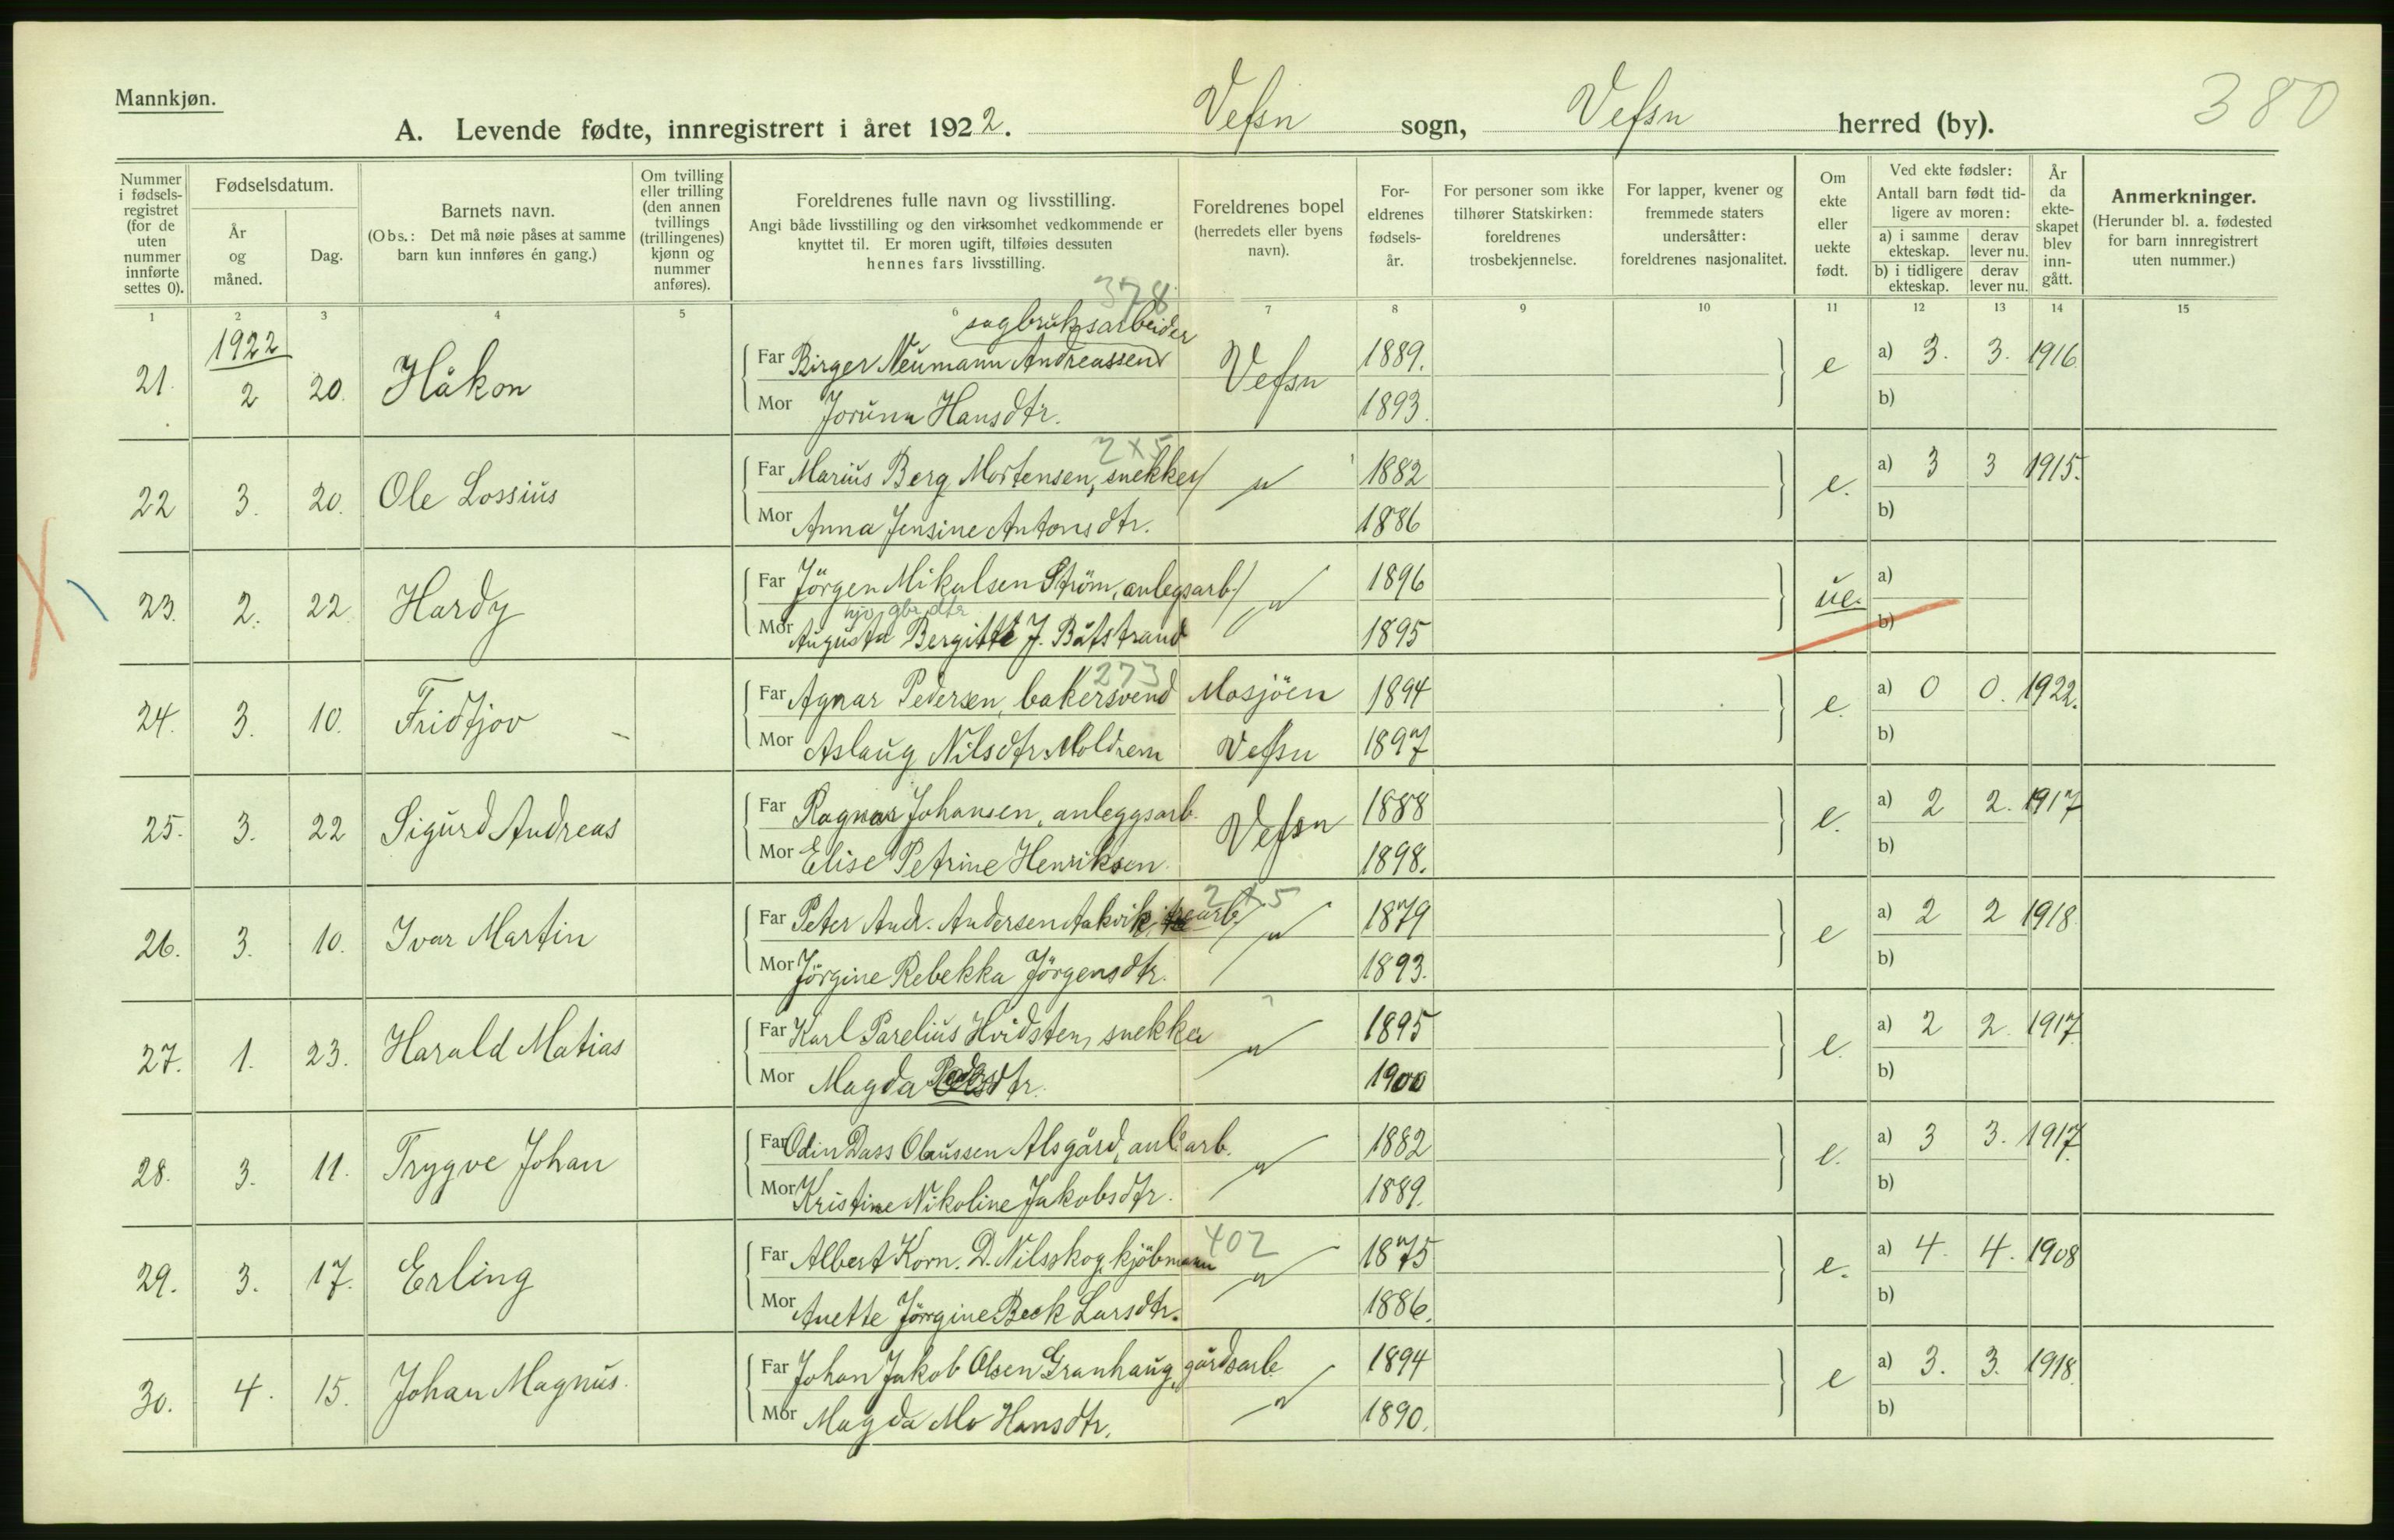 Mannkjøn.
380
A. Levende fødte, innregistrert i året 1922. Vefsn sogn, Vefsn herred (by).
Nummer i fødsels-registret (for de uten nummer innførte settes 0).
Fødselsdatum.
År og måned.
Dag.
Barnets navn.
(Obs.: Det må nøie påses at samme barn kun innføres én gang.)
Om tvilling eller trilling (den annen tvillings (trillingenes) kjønn og nummer anføres).
Foreldrenes fulle navn og livsstilling.
Angi både livsstilling og den virksomhet vedkommende er knyttet til. Er moren ugift, tilføies dessuten hennes fars livsstilling.
Foreldrenes bopel (herredets eller byens navn).
For-eldrenes fødsels-år.
For personer som ikke tilhører Statskirken: foreldrenes trosbekjennelse.
For lapper, kvener og fremmede staters undersåtter: foreldrenes nasjonalitet.
Om ekte eller uekte født.
Ved ekte fødsler: Antall barn født tid-ligere av moren:
a) i samme ekteskap. derav lever nu.
b) i tidligere ekteskap. derav lever nu.
År da ekte-skapet blev inn-gått.
Anmerkninger.
(Herunder bl. a. fødested for barn innregistrert uten nummer.)
1 2 3 4 5 6 7 8 9 10 11 12 13 14 15
1922
378
sagbruksarbeider
21. 2 20. Håkon Far Birger Neumann Andreassen Vefsn 1889. e a) 3. 3. 1916
Mor Jorunn Hansdtr. 1893. b)
2x5
22 3. 20. Ole Lossius Far Marius Berg Mortensen, snekker " 1882 e. a) 3 3 1915.
Mor Anna Jensine Antonsdtr. 1886 b)
23. 2. 22 Hardy Far Jörgen Mikalsen Ström, anlegsarb. " 1896 ue. a)
Mor Augusta Bergitte J. Båtstrand 1895 b)
273
24. 3. 10. Fridtjov Far Agnar Pedersen, bakersvend Mosjöen 1894 e. a) 0 0. 1922.
Mor Aslaug Nilsdtr. Moldrem Vefsn 1897 b)
25. 3. 22 Sigurd Andreas Far Ragnar Johansen, anleggsarb. Vefsn 1888 e. a) 2 2. 1917
Mor Elise Petrine Henriksen 1898. b)
2x5
26. 3. 10. Ivar Martin Far Peter Andr. Andersen Aakvik, trearb. " 1879 e a) 2 2 1918
Mor Jörgine Rebekka Jörgensdtr. 1893. b)
27. 1. 23. Harald Matias Far Karl Parelius Hvidsten, snekker " 1895 e. a) 2 2. 1917
Mor Magda Pedersdtr. 1900 b)
28. 3. 11. Trygve Johan Far Odin Dass Olaussen Alsgård, anl.arb. " 1882 e. a) 3 3. 1917.
Mor Kristine Nikoline Jakobsdtr. 1889. b)
402
29. 3. 17. Erling Far Albert Korn. D. Nilsskog, kjöbmann " 1875 e. a) 4. 4. 1908
Mor Anette Jörgine Beck Larsdtr. 1886. b)
30. 4. 15. Johan Magnus. Far Johan Jakob Olsen Granhaug, gårdsarb. " 1894 e a) 3. 3. 1918.
Mor Magda Mo Hansdtr. 1890. b)